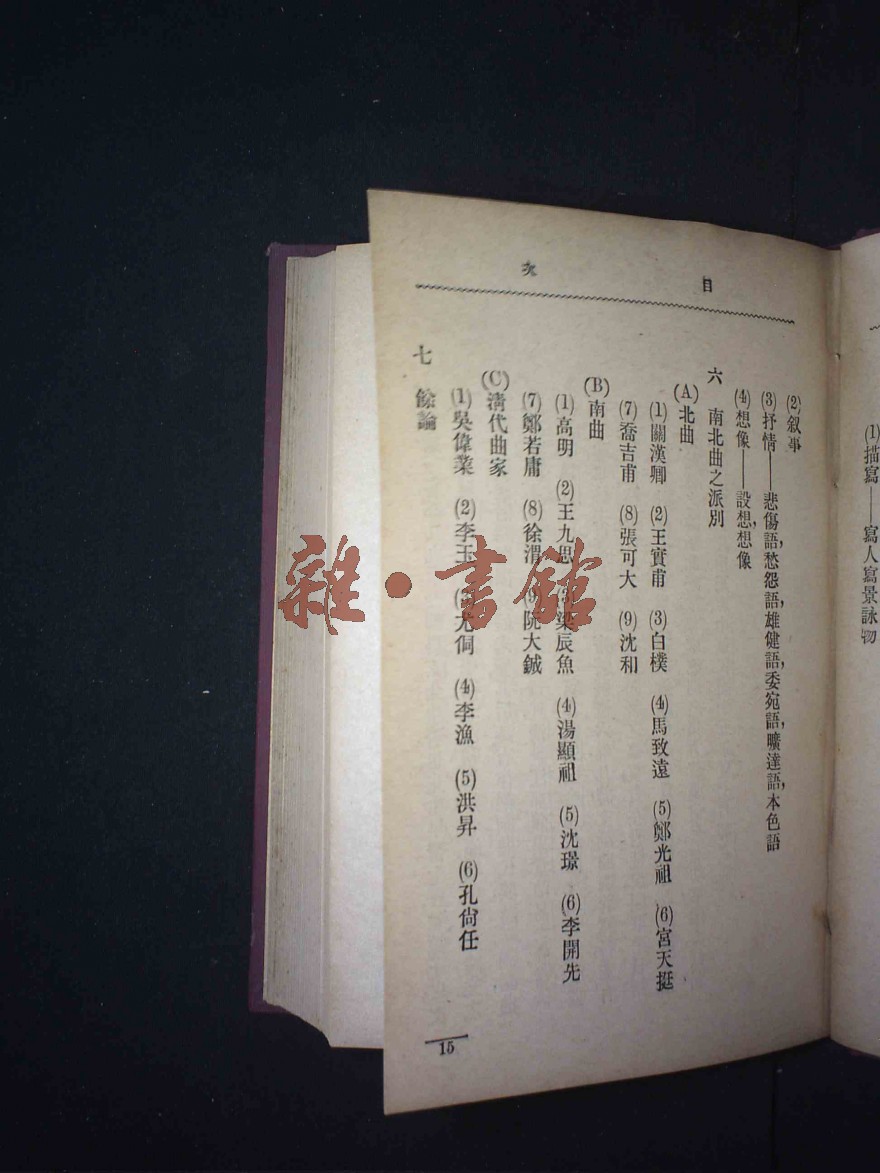 (1)描寫——寫人寫景詠物
目次
(2)叙事
(3)抒情——悲傷語，愁怨語，雄健語，委宛語，曠達語，本色語
(4)想像——設想，想像
六　南北曲之派別
(A)北曲
(1)關漢卿　(2)王實甫　(3)白樸　(4)馬致遠　(5)鄭光祖　(6)宮天挺
(7)喬吉甫　(8)張可大　(9)沈和
(B)南曲
(1)高明　(2)王九思　(3)梁辰魚　(4)湯顯祖　(5)沈璟　(6)李開先
(7)鄭若庸　(8)徐渭　(9)阮大鋮
(C)清代曲家
(1)吳偉業　(2)李玉　(3)尤侗　(4)李漁　(5)洪昇　(6)孔尙任
七　餘論
15
雜·書館